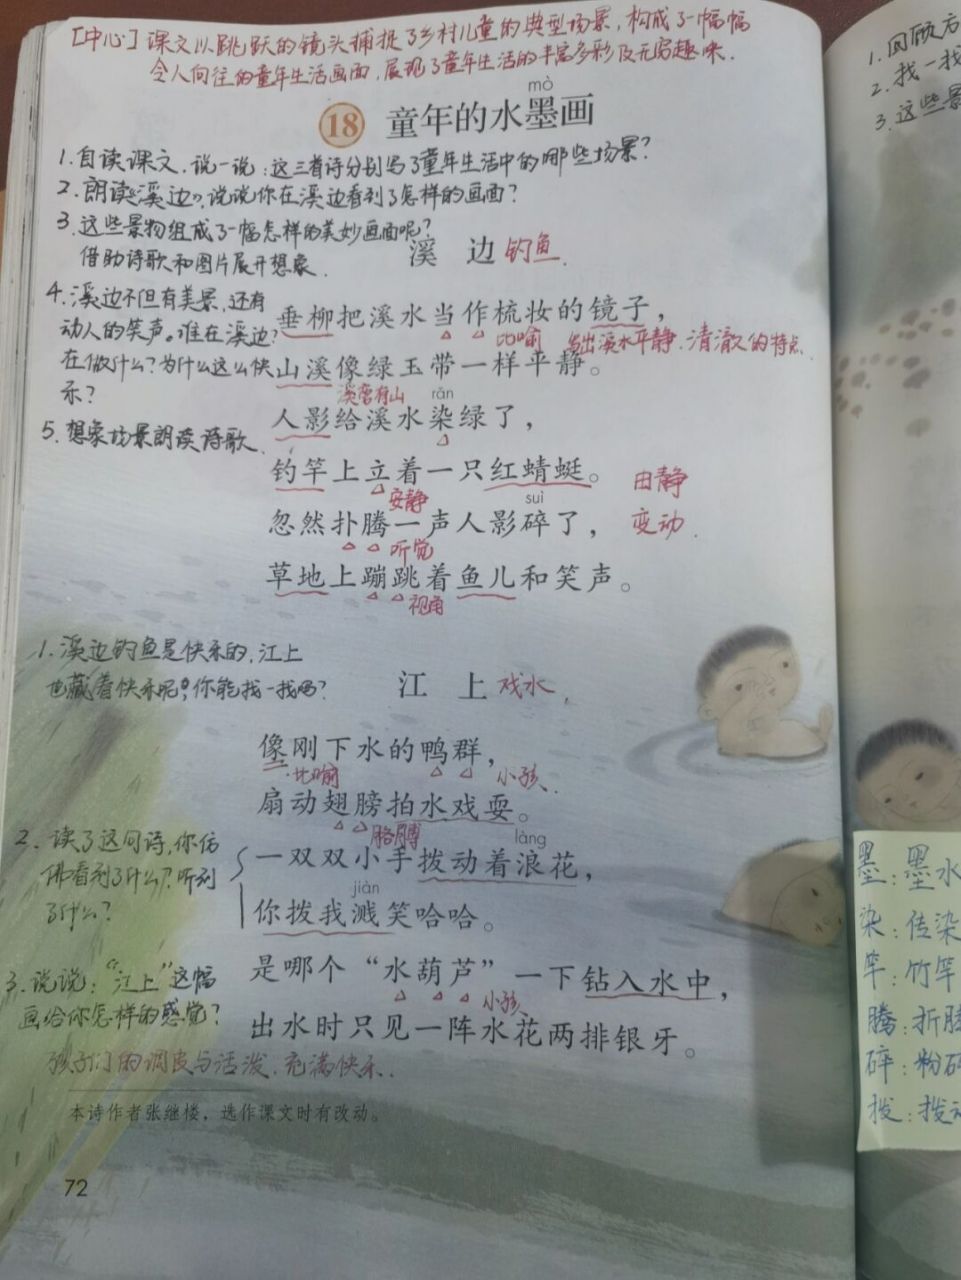 [中心]课文以跳跃的镜头捕捉了乡村儿童的典型场景，构成了一幅幅
令人向往的童年生活画面，展现了童年生活的丰富多彩及无穷趣味.
mò
18 童年的水墨画
1.自读课文,说一说:这三首诗分别写了童年生活中的哪些场景?
2.朗读《溪边》,说说你在溪边看到了怎样的画面?
3.这些景物组成了一幅怎样的美妙画面呢?
借助诗歌和图片展开想象.
溪 边 钓鱼.
4.溪边不但有美景,还有
动人的笑声。谁在溪边?
在做什么?为什么这么快
乐?
5.想象场景朗读诗歌.
垂柳把溪水当作梳妆的镜子，
比喻 写出溪水平静.清澈的特点.
山溪像绿玉带一样平静。
rǎn
人影给溪水染绿了，
钓竿上立着一只红蜻蜓。 由静
安静 suì
忽然扑腾一声人影碎了， 变动.
听觉
草地上蹦跳着鱼儿和笑声。
视角
1.溪边钓鱼是快乐的,江上
也藏着快乐呢,你能找一找吗?
江 上 戏水.
像刚下水的鸭群，
比喻 小孩.
扇动翅膀拍水戏耍。
胳膊 làng
2.读了这问诗,你仿
佛看到了什么?听到
了什么?
一双双小手拨动着浪花，
jiàn
你拨我溅笑哈哈。
3.说说:“江上”这幅
画给你怎样的感觉?
孩子们的调皮与活泼.充满快乐.
是哪个“水葫芦”一下钻入水中，
小孩
出水时只见一阵水花两排银牙。
本诗作者张继楼，选作课文时有改动。
72
1.回顾方
2.找一找
3.这些景
墨:墨水
染:传染
竿:竹竿
腾:折腾
碎:粉碎
拨:拨动